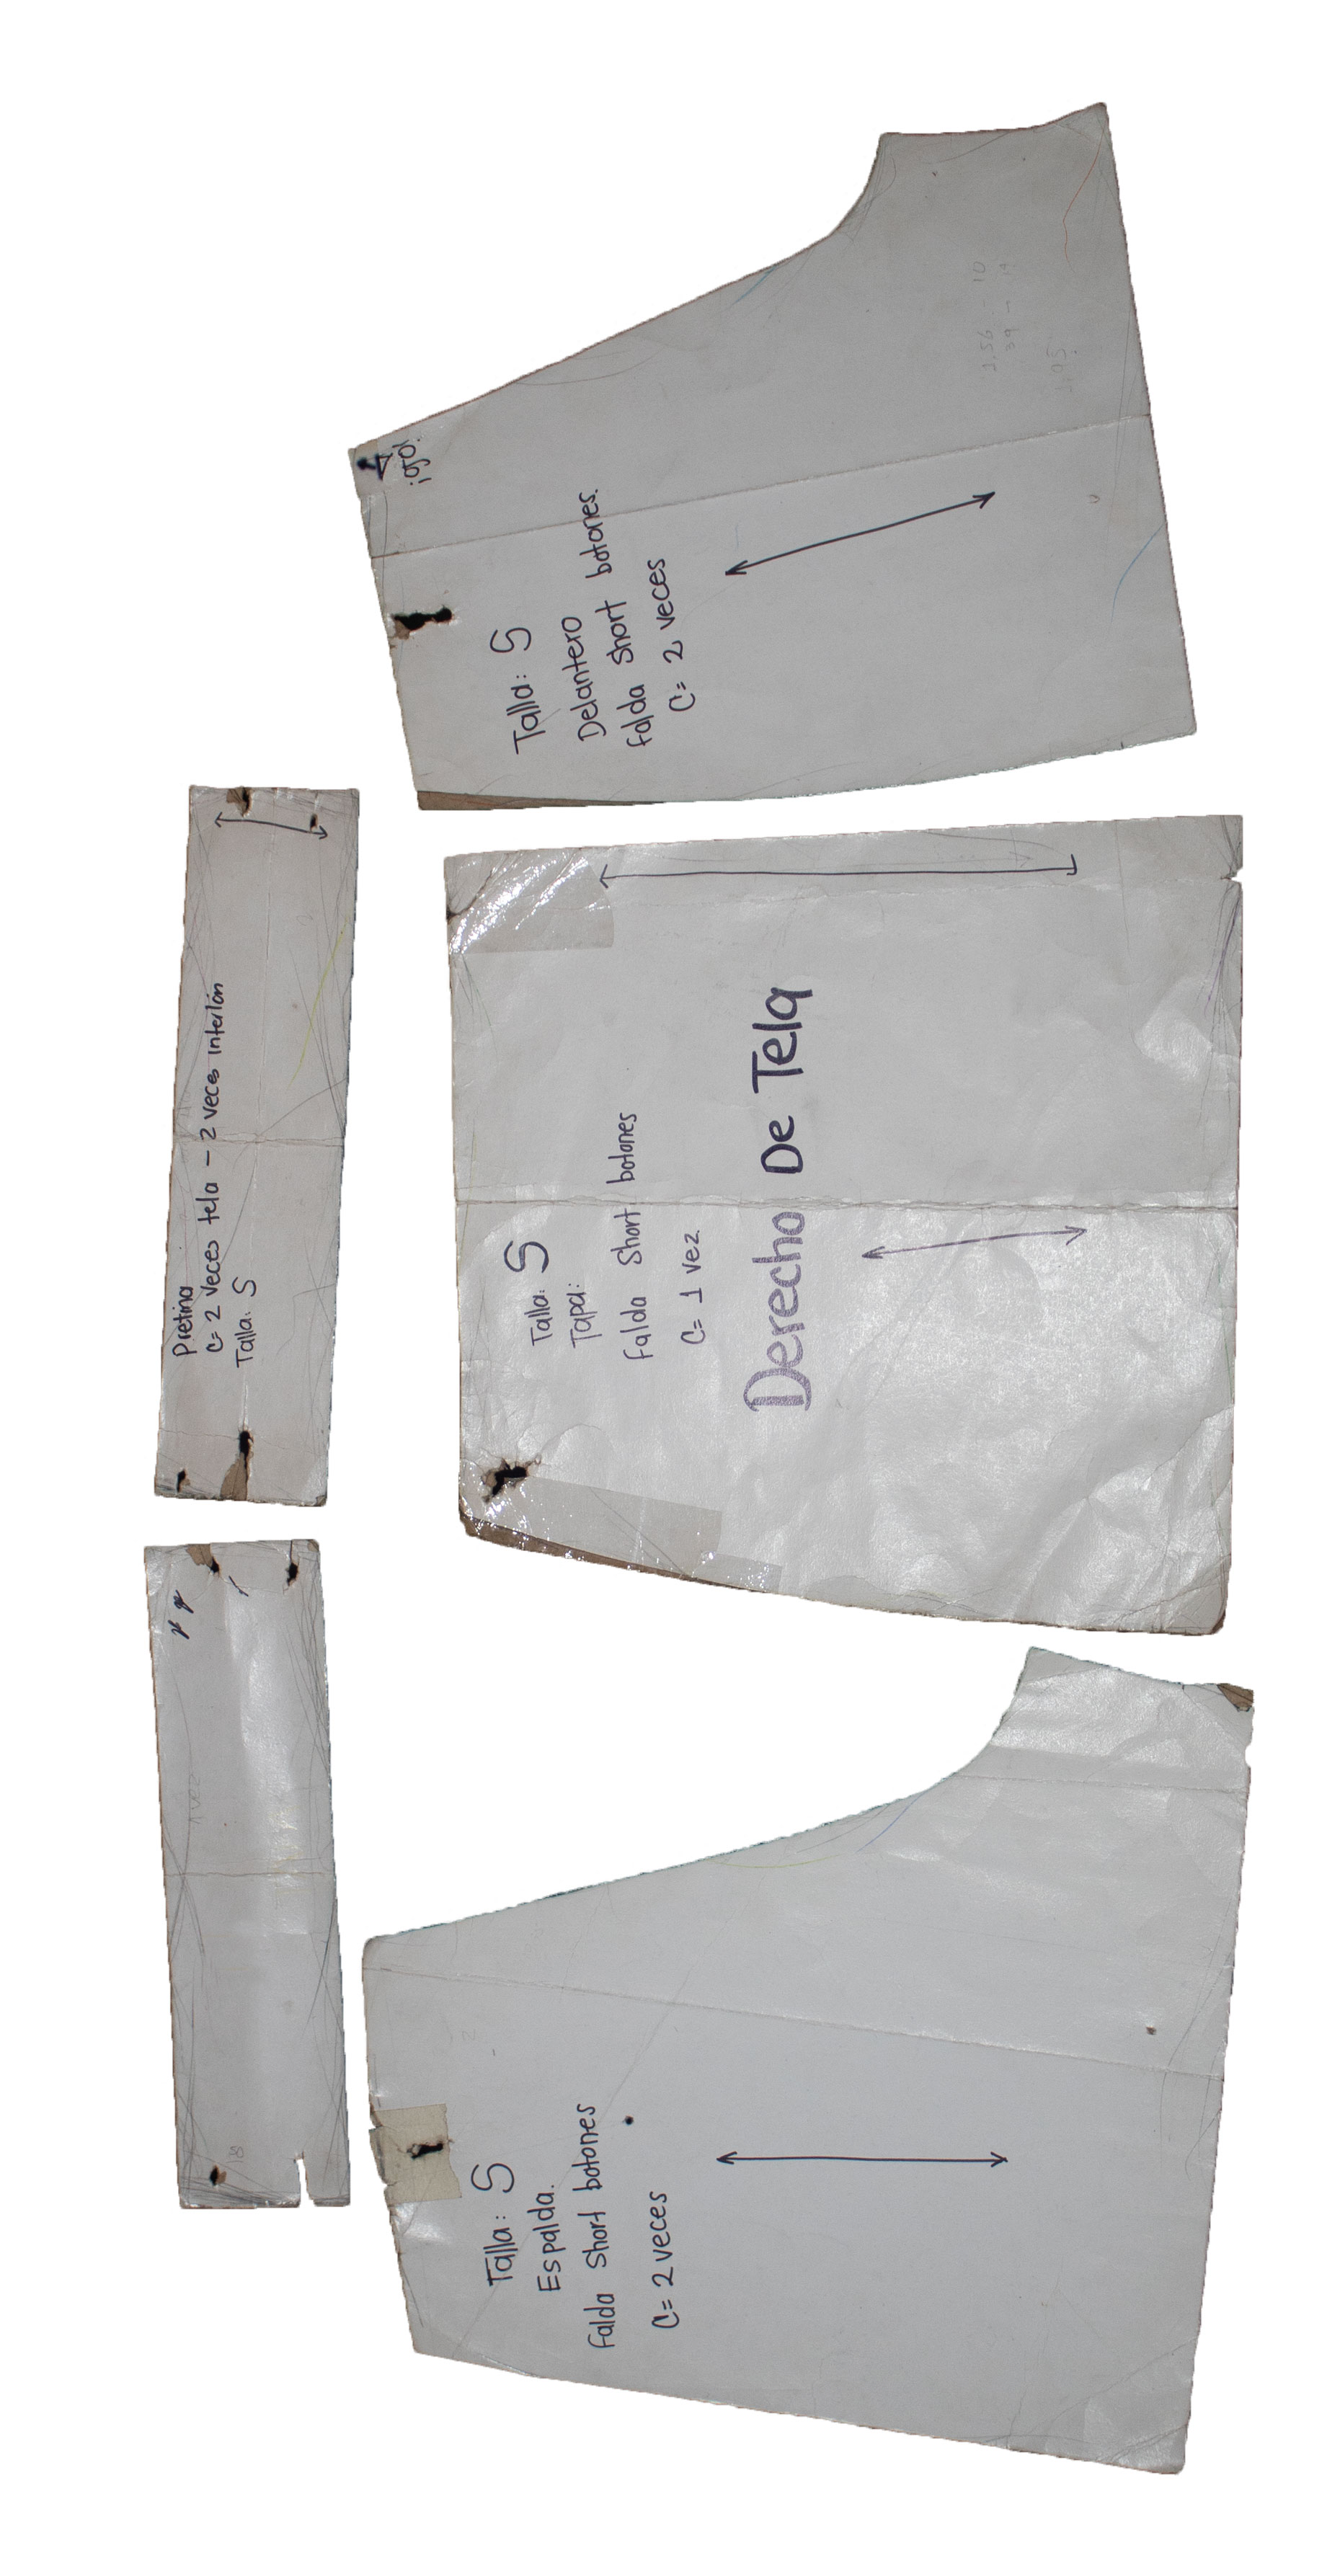 ¡ojo!
Talla: S
Delantero
falda short botones.
C= 2 veces
1.56 - 10
39 - 19
1.95
Pretina
C= 2 veces tela - 2 veces interlón
Talla: S
Talla: S
Tapa:
falda short botones
C= 1 vez
Derecho De Tela
1 vez
Talla: S
Espalda.
falda short botones
C= 2 veces